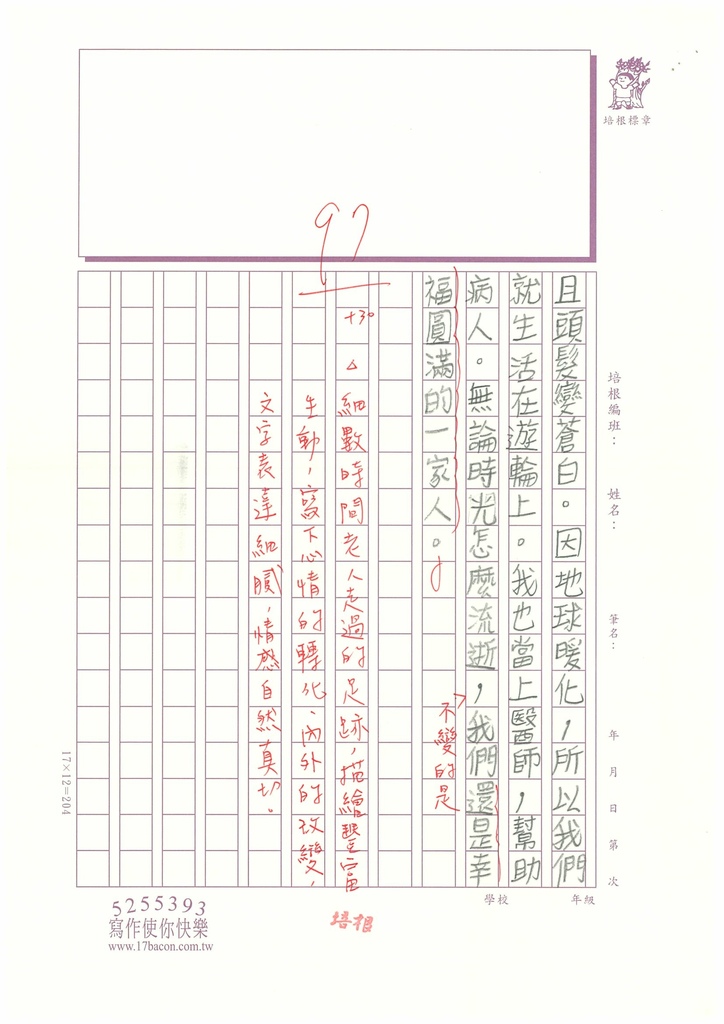 培根標章
97
+30
培根編班：
姓名：
筆名：
年 月 日 第 次
學校
年級
且頭髮變蒼白。因地球暖化，所以我們
就生活在遊輪上。我也當上醫師，幫助
病人。無論時光怎麼流逝，我們還是幸
不變的是
福圓滿的一家人。
△細數時間老人走過的足跡，描繪豐富
生動，寫下心情的轉化、內外的改變，
文字表達細膩，情感自然真切。
17×12=204
5255393
寫作使你快樂
www.17bacon.com.tw
培根